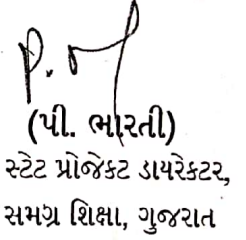 (પી. ભારતી)
સ્ટેટ પ્રોજેક્ટ ડાયરેક્ટર,
સમગ્ર શિક્ષા, ગુજરાત